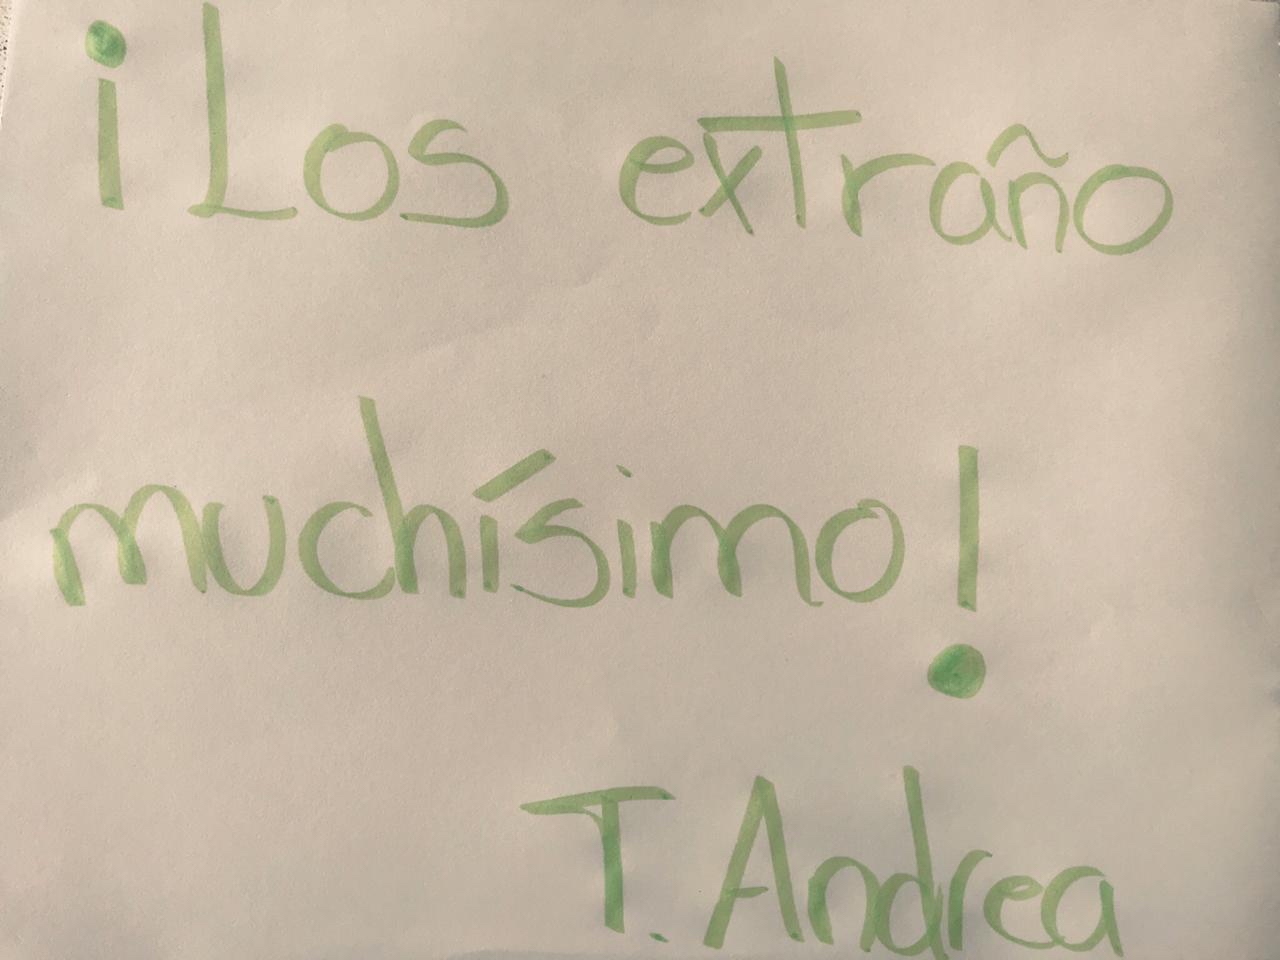 ¡Los extraño
muchísimo!
T. Andrea